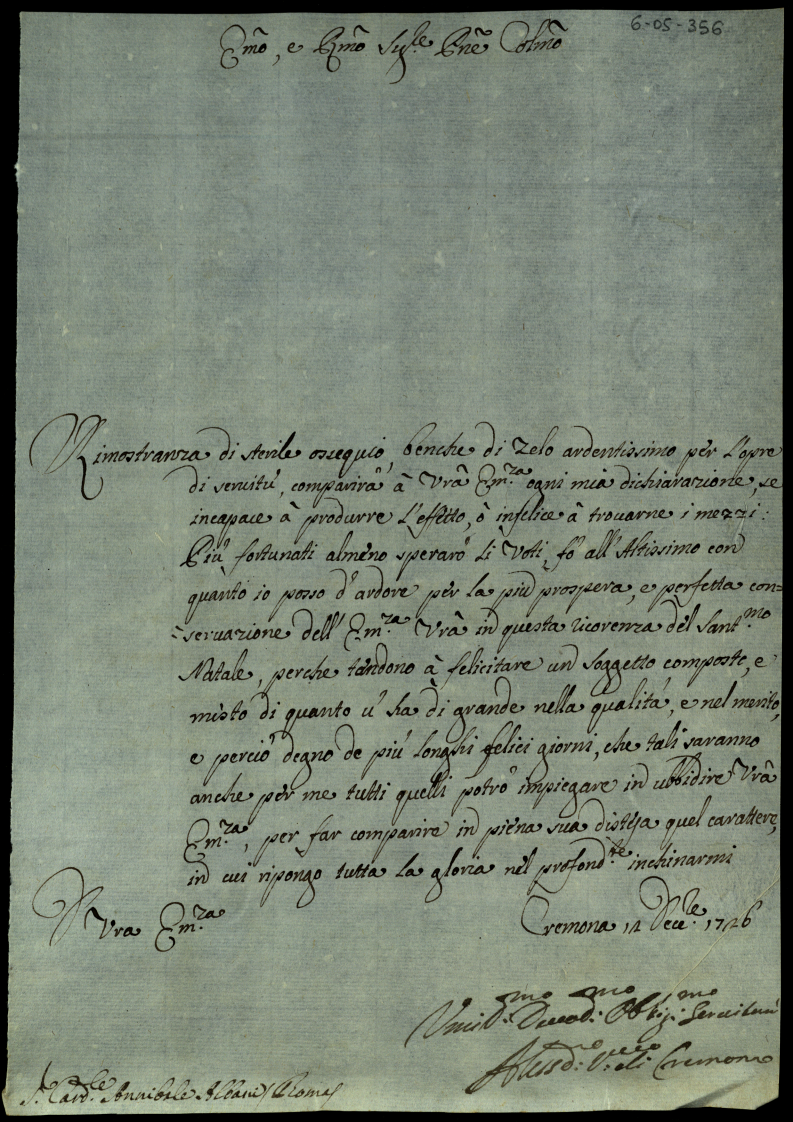 6-05-356
Emõ, e Rmõ Sig.re Pnẽ Colmõ
Rimostranza di sterile ossequio, benche di zelo ardentissimo per l'opre
di seruitù, comparirà à Vrã Em.za ogni mia dichiarazione, se
incapace à produrre l'effetto, ò infelice à trouarne i mezzi:
Più fortunati almeno sperarò li Voti, fò all'Altissimo con
quanto io posso d'ardore per la più prospera, e perfetta con=
=seruazione dell'Em.za Vrã in questa ricorenza del Sant.mo
Natale, perche tendono à felicitare un soggetto composto, e
misto di quanto u' ha di grande nella qualità, e nel merito,
e perciò degno de più longhi felici giorni, che tali saranno
anche per me tutti quelli potrò impiegare in ubbidire Vrã
Em.za, per far comparire in piena sua distesa quel carattere,
in cui ripongo tutta la gloria nel profond.te inchinarmi
D Vra Em.za
Cremona 12 Dece.re 1726
Umil.mo Diuo.mo Oblig.mo Seruitore
Aless.dro V.ecco di Cremona
S.r Card.le Annibale Albani / Roma /